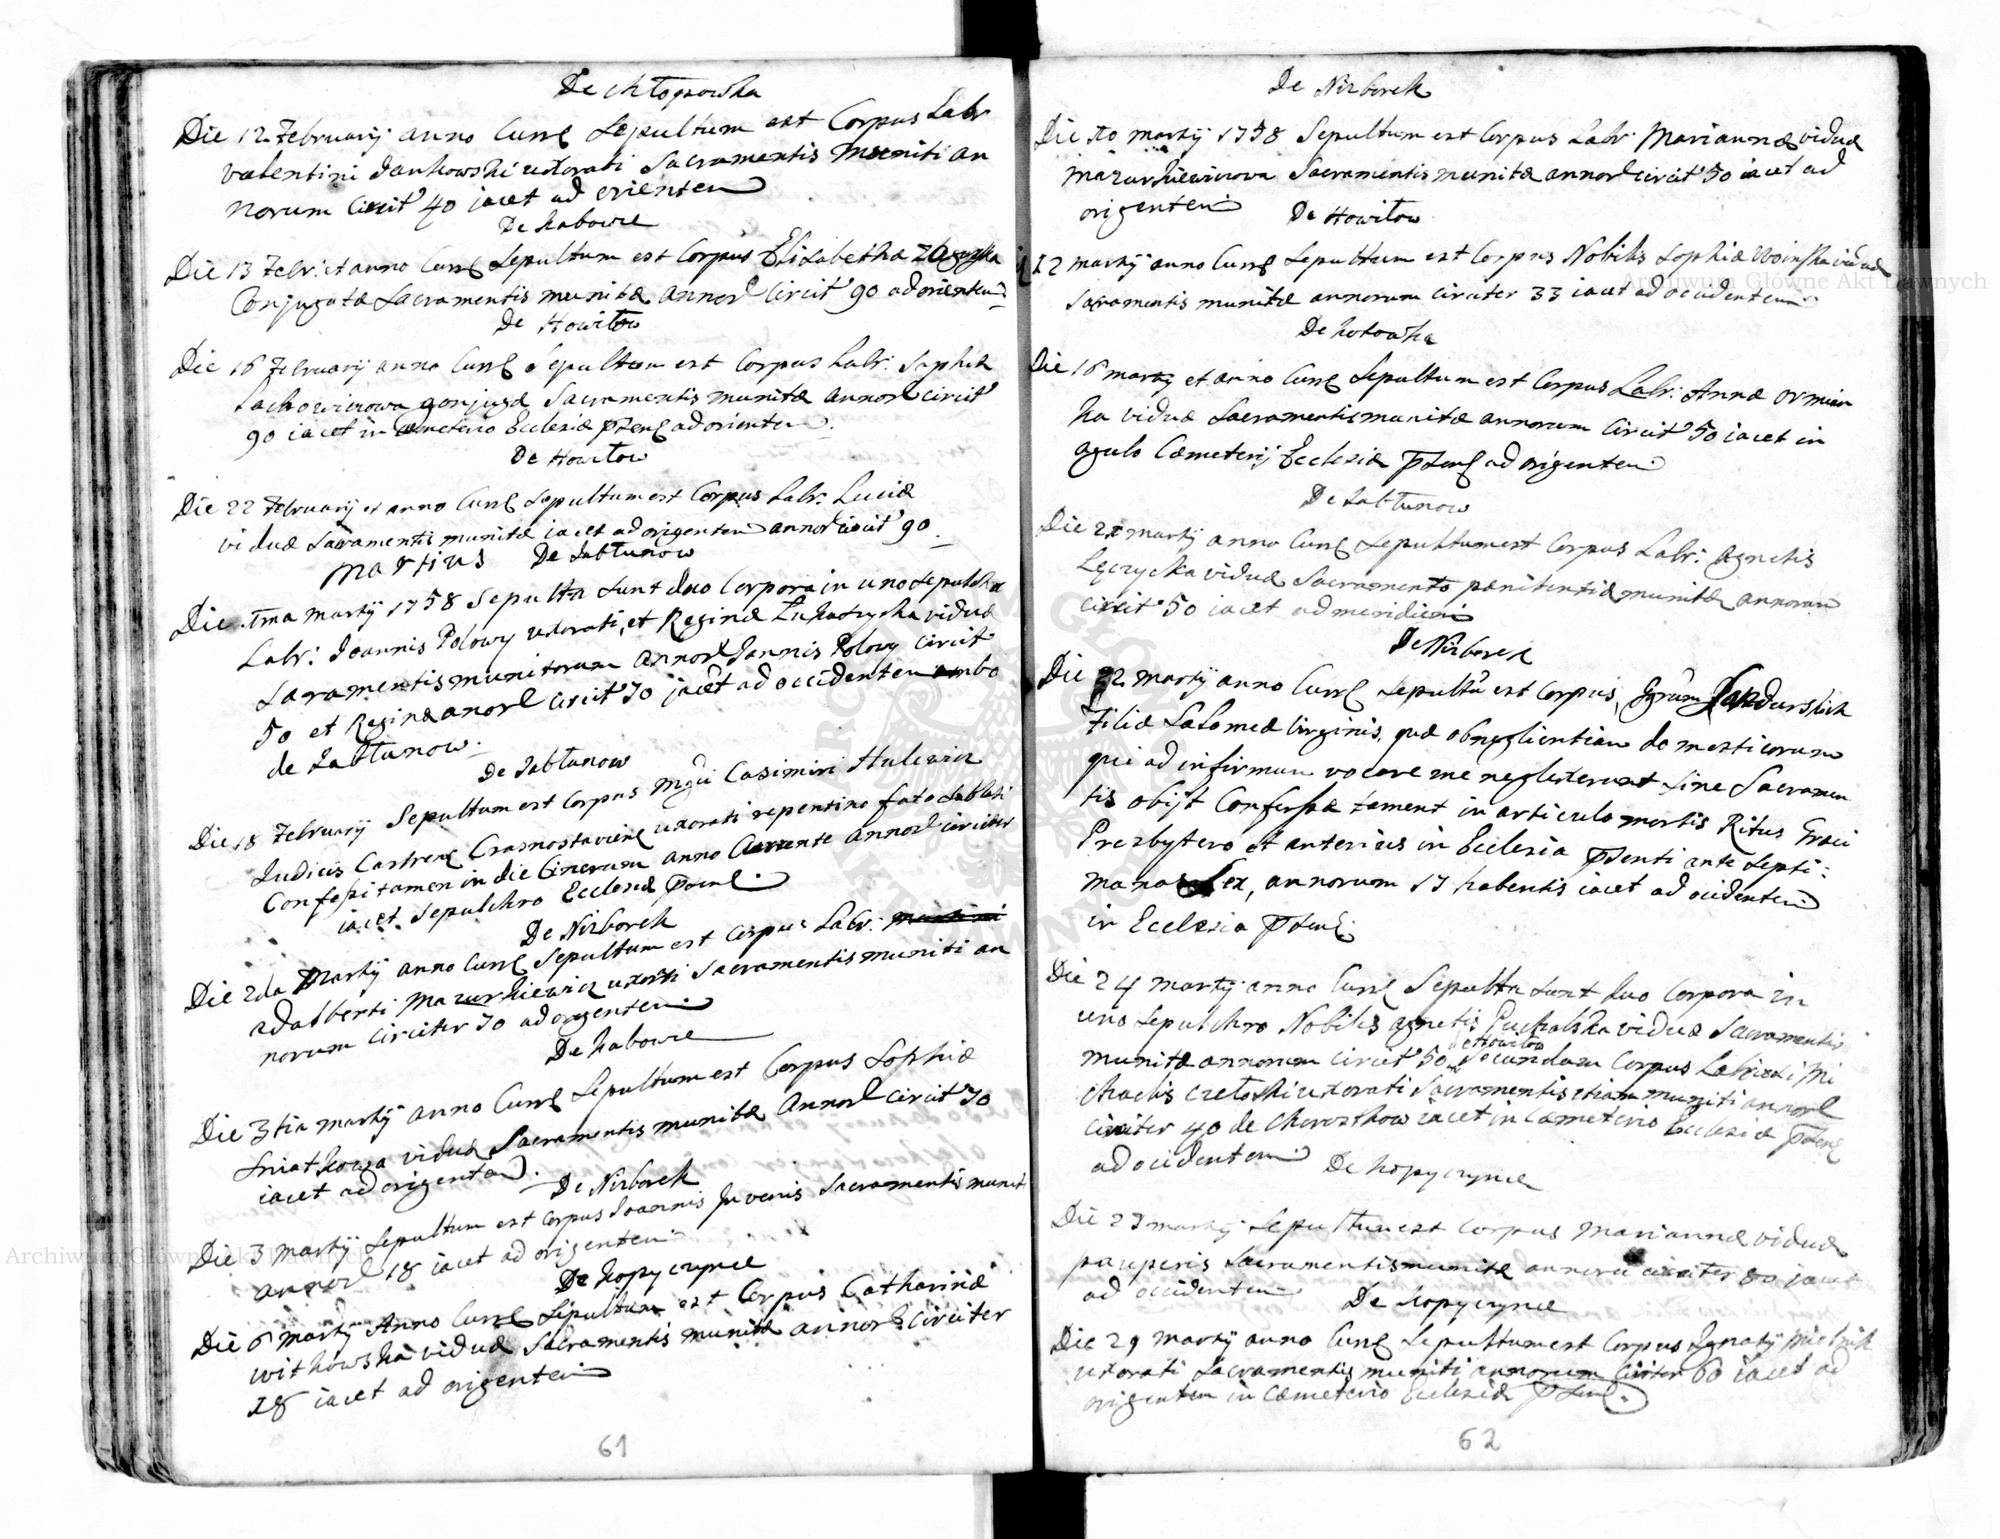 De Kłopowka
Die 12 Februarij anno Curre Sepultum est Corpus Labr
Valentini Jankowski uxorati Sacramentis muniti an
norum circit 40 jacet ad orientem
De Kabowce
Die 13 Febr: et anno Curre Sepultum est Corpus Elisabetha
Conjugatæ Sacramentis munitæ annor circit 90 ad orientem
De Howiłow
Die 16 Februarij anno Curre Sepultum est Corpus Labr: Sophiæ
Lachowiczowa conjugæ Sacramentis munitæ annor circit
90 iacet in Cæmeterio Ecclesiæ pten ad orientem
De Howiłow
Die 22 Februarij et anno Curre Sepultum est Corpus Labr: Luciæ
viduæ Sacramentis munitæ iacet ad origentem annor circit 90
Martius De Jabłunow
Die 1ma Martij 1758 Sepulta sunt duo Corpora in uno Sepulchro
Labr: Joannis Polowy uxorati, et Reginæ viduæ
Sacramentis munitorum annor Joannis Polowy circit
50 et Reginæ anor circit 70 jacet ad occidentem ambo
de Jabłunow.
De Jabłunow
Die 18 Februarij Sepultum est Corpus Mgci Casimiri Hulewicz
Judicis Castren Crasnostaviens uxorati repentino fato sublati
Confessi tamen in die Cinerum anno Currente annor circiter
iacet Sepulchro Ecclesiæ pten.
De Nizborek
Die 2da Martij anno Curre Sepultum est Corpus Labr:
Adalberti Mazurkiewicz uxorati Sacramentis muniti an
norum circiter 70 ad origentem
De Kabowce
Die 3tia Martij anno Curre Sepultum est Corpus Sophiæ
Sniatkowa viduæ Sacramentis munitæ Annor circit 70
iacet ad origentem.
De Nizborek
Die 3 Martij Sepultum est Corpus Joannis Juvenis Sacramentis munit
annor 18 iacet ad origentem
De Kopyczynce
Die 6 Martij Anno Curre Sepultum est Corpus Catharinæ
Witkowska viduæ Sacramentis munitæ annor circiter
28 iacet ad origentem
61
De Nizborek
Die 10 Martij 1758 Sepultum est Corpus Labr: Mariannæ viduæ
Mazurkiewiczowa Sacramentis munitæ annor circit 50 iacet ad
origentem De Howiłow
12 Martij anno Curre Sepultum est Corpus Nobilis Sophiæ Woinska viduæ
Sacramentis munitæ annorum circiter 33 iacet ad occidentem
De Kotowka
Die 16 Martij et anno Curre Sepultum est Corpus Labr: Annæ Ormian
ka viduæ Sacramentis munitæ annorum circit 50 iacet in
agulo Cæmeterij Ecclesiæ pten ad origentem
De Jabłunow
Die 21 Martij anno Curre Sepultum est Corpus Labr: Agnetis
Łęczycka viduæ Sacramento pœnitentiæ munitæ annorum
circit 50 iacet ad meridiem
De Nizborek
Die 22 Martij anno Curre Sepultū est Corpus,
Filiæ Salomeæ Virginis, quæ ob negligentiam domesticorum
qui ad infirmum vocare me neglexerunt sine Sacramen
tis obijt Confessa tament in articulo mortis Ritus Græci
Presbytero et anterius in Ecclesia ptenti ante Septi:
manas Sex, annorum 17 habentis iacet ad occidentem
in Ecclesia pten
Die 24 Martij anno Curre Sepulta sunt duo Corpora in
uno Sepulchro Nobilis Agnetis Puchalska viduæ Sacramentis
de Howiłow
munitæ annorum circit 50. Secundum Corpus Laboriosi Mi
chaelis uxorati Sacramentis etiam muniti annor
circiter 40 de Chorostkow iacet in Cæmeterio Ecclesiæ pten
ad occidentem De Kopyczynce
Die 27 Martij Sepultum est Corpus Mariannæ viduæ
pauperis Sacramentis munitæ annoru circiter 80 iacet
ad occidentem De Kopyczynce
Die 29 Martij anno Curre Sepultum est Corpus Ignatij Mielnik
uxorati Sacramentis muniti annorum circiter 60 iacet ad
origentem in Cæmeterio Ecclesiæ pten.
62
Archiwum Główne Akt Dawnych
Archiwum Główne Akt Dawnych